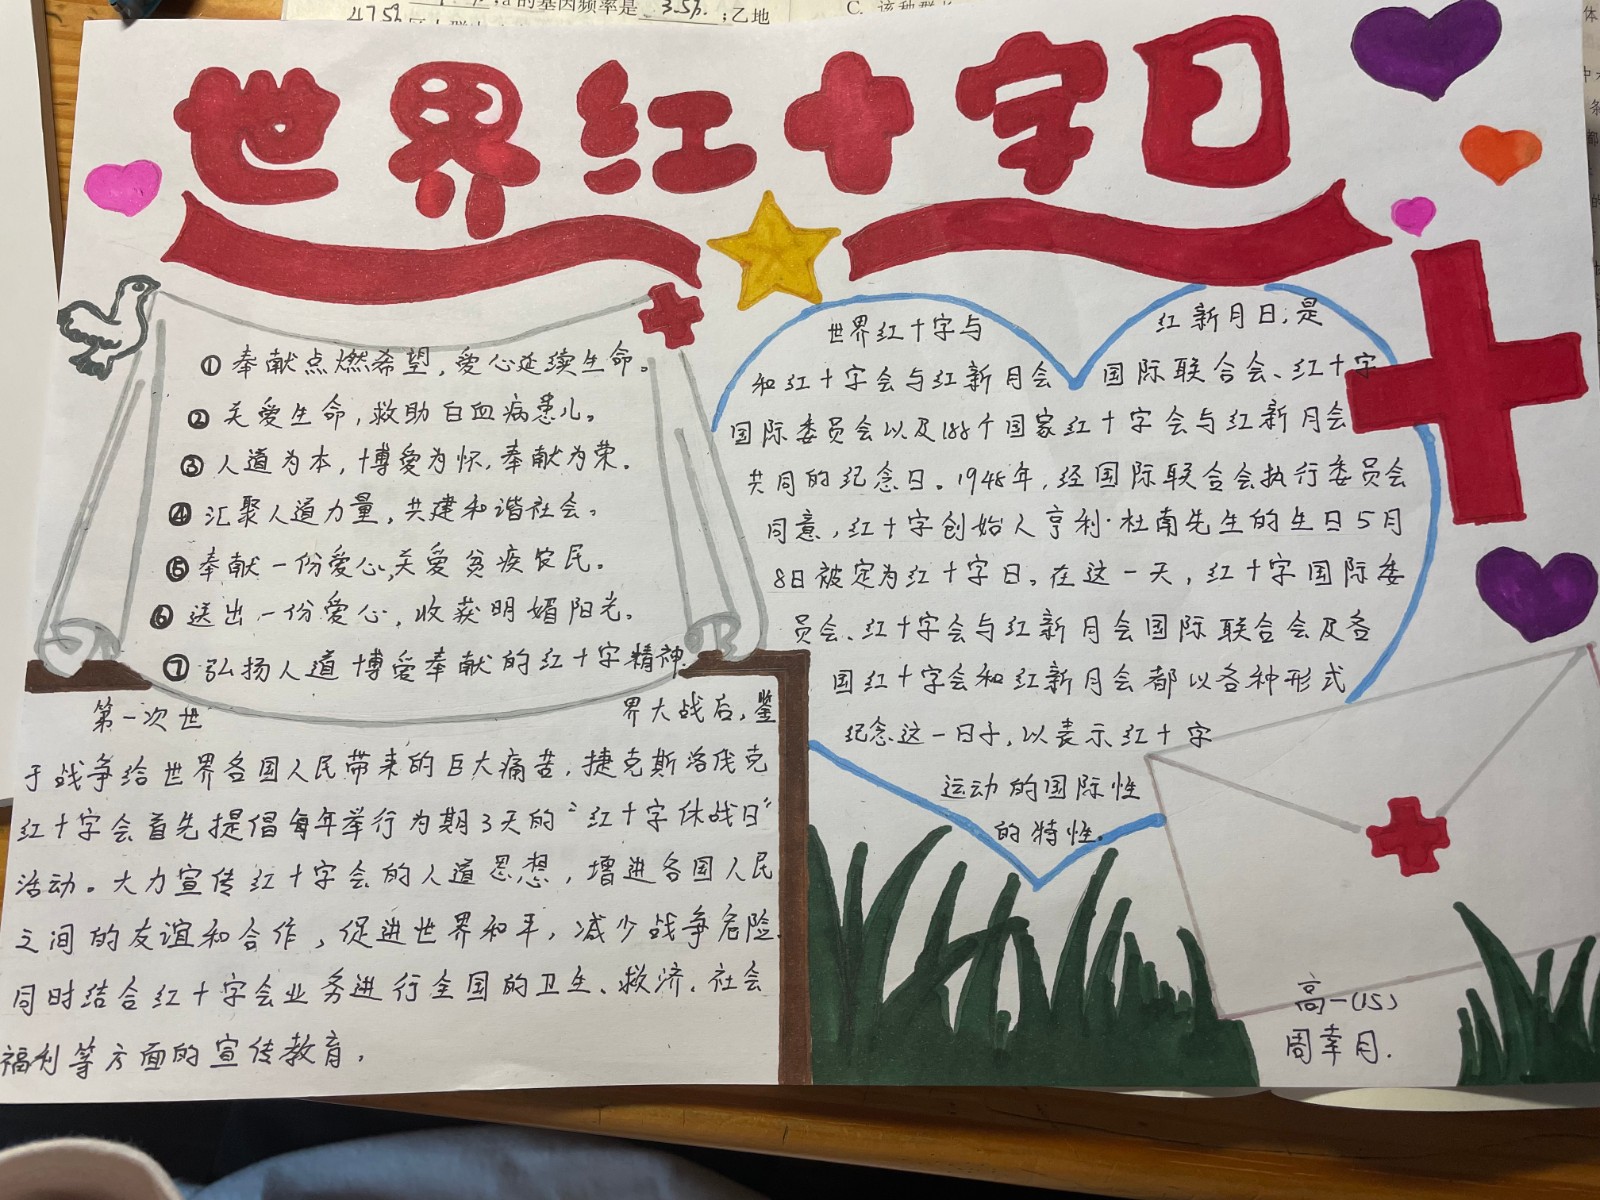 a的基因频率是 3.5%. ;乙地
47.5%
C. 该种群
世界红十字日
①奉献点燃希望,爱心延续生命。
②关爱生命,救助白血病患儿。
③人道为本,博爱为怀,奉献为荣。
④汇聚人道力量,共建和谐社会。
⑤奉献一份爱心,关爱贫疾农民。
⑥送出一份爱心,收获明媚阳光。
⑦弘扬人道博爱奉献的红十字精神.
第一次世界大战后,鉴
于战争给世界各国人民带来的巨大痛苦,捷克斯洛伐克
红十字会首先提倡每年举行为期3天的“红十字休战日”
活动。大力宣传红十字会的人道思想,增进各国人民
之间的友谊和合作,促进世界和平,减少战争危险.
同时结合红十字会业务进行全国的卫生、救济、社会
福利等方面的宣传教育,
世界红十字与红新月日,是
和红十字会与红新月会国际联合会、红十字
国际委员会以及188个国家红十字会与红新月会
共同的纪念日。1948年,经国际联合会执行委员会
同意,红十字创始人亨利·杜南先生的生日5月
8日被定为红十字日。在这一天,红十字国际委
员会、红十字会与红新月会国际联合会及各
国红十字会和红新月会都以各种形式
纪念这一日子,以表示红十字
运动的国际性
的特性.
高一(15)
周幸月.